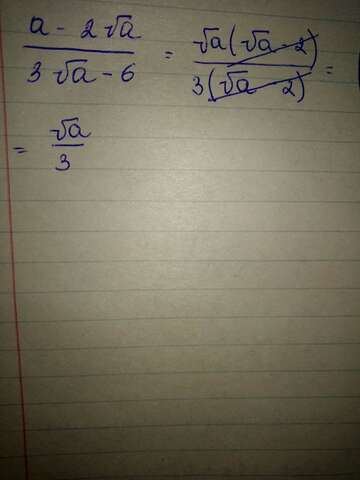 a - 2√a / 3√a - 6 = √a(√a - 2) / 3(√a - 2) =
= √a / 3